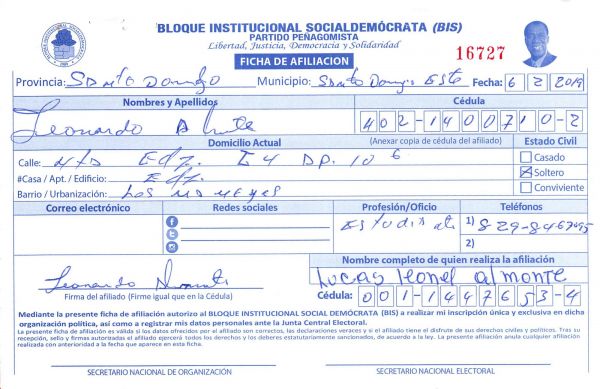 BLOQUE INSTITUCIONAL SOCIALDEMÓCRATA (BIS)
PARTIDO PEÑAGOMISTA
Libertad, Justicia, Democracia y Solidaridad
FICHA DE AFILIACION
16727
Provincia: Santo Domingo Municipio: Santo Domingo Este Fecha: 6 / 2 / 2019
Nombres y Apellidos Cédula
Leonardo 402-1400710-2
Domicilio Actual (Anexar copia de cédula del afiliado) Estado Civil
Calle: Edf. I4 DP. 106 Casado
#Casa / Apt. / Edificio: Edf. Soltero
Barrio / Urbanización: Los Conviviente
Correo electrónico Redes sociales Profesión/Oficio Teléfonos
1) 829-846
2)
Nombre completo de quien realiza la afiliación
Leonardo Lucas Leonel almonte
Firma del afiliado (Firme igual que en la Cédula) Cédula: 001-1447653-4
Mediante la presente ficha de afiliación autorizo al BLOQUE INSTITUCIONAL SOCIAL DEMÓCRATA (BIS) a realizar mi inscripción única y exclusiva en dicha
organización política, así como a registrar mis datos personales ante la Junta Central Electoral.
La presente ficha de afiliación es válida si los datos ofrecidos por el afiliado son correctos, las declaraciones veraces y si el afiliado tiene el disfrute de sus derechos civiles y políticos. Tras su
recepción, sello y firmas autorizadas el afiliado ejercerá todos los derechos y los deberes estatutariamente sancionados, de acuerdo a la ley. La presente afiliación anula cualquier afiliación
realizada con anterioridad a la fecha que aparece en esta ficha.
SECRETARIO NACIONAL DE ORGANIZACIÓN SECRETARIO NACIONAL ELECTORAL